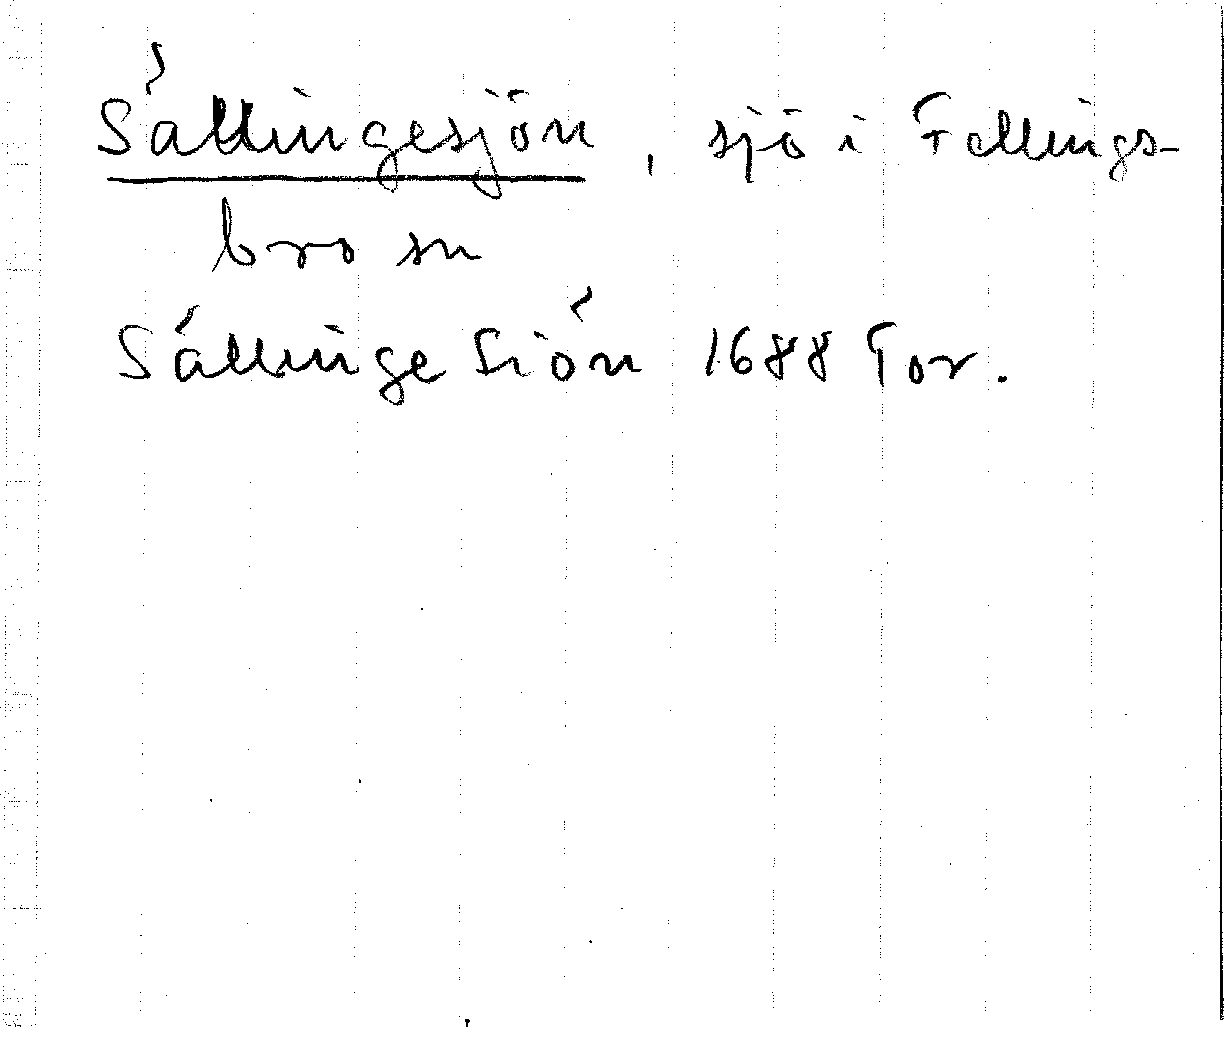 Sällingesjön, sjö i Fellings-
bro sn
Sällinge Siön 1688 For.